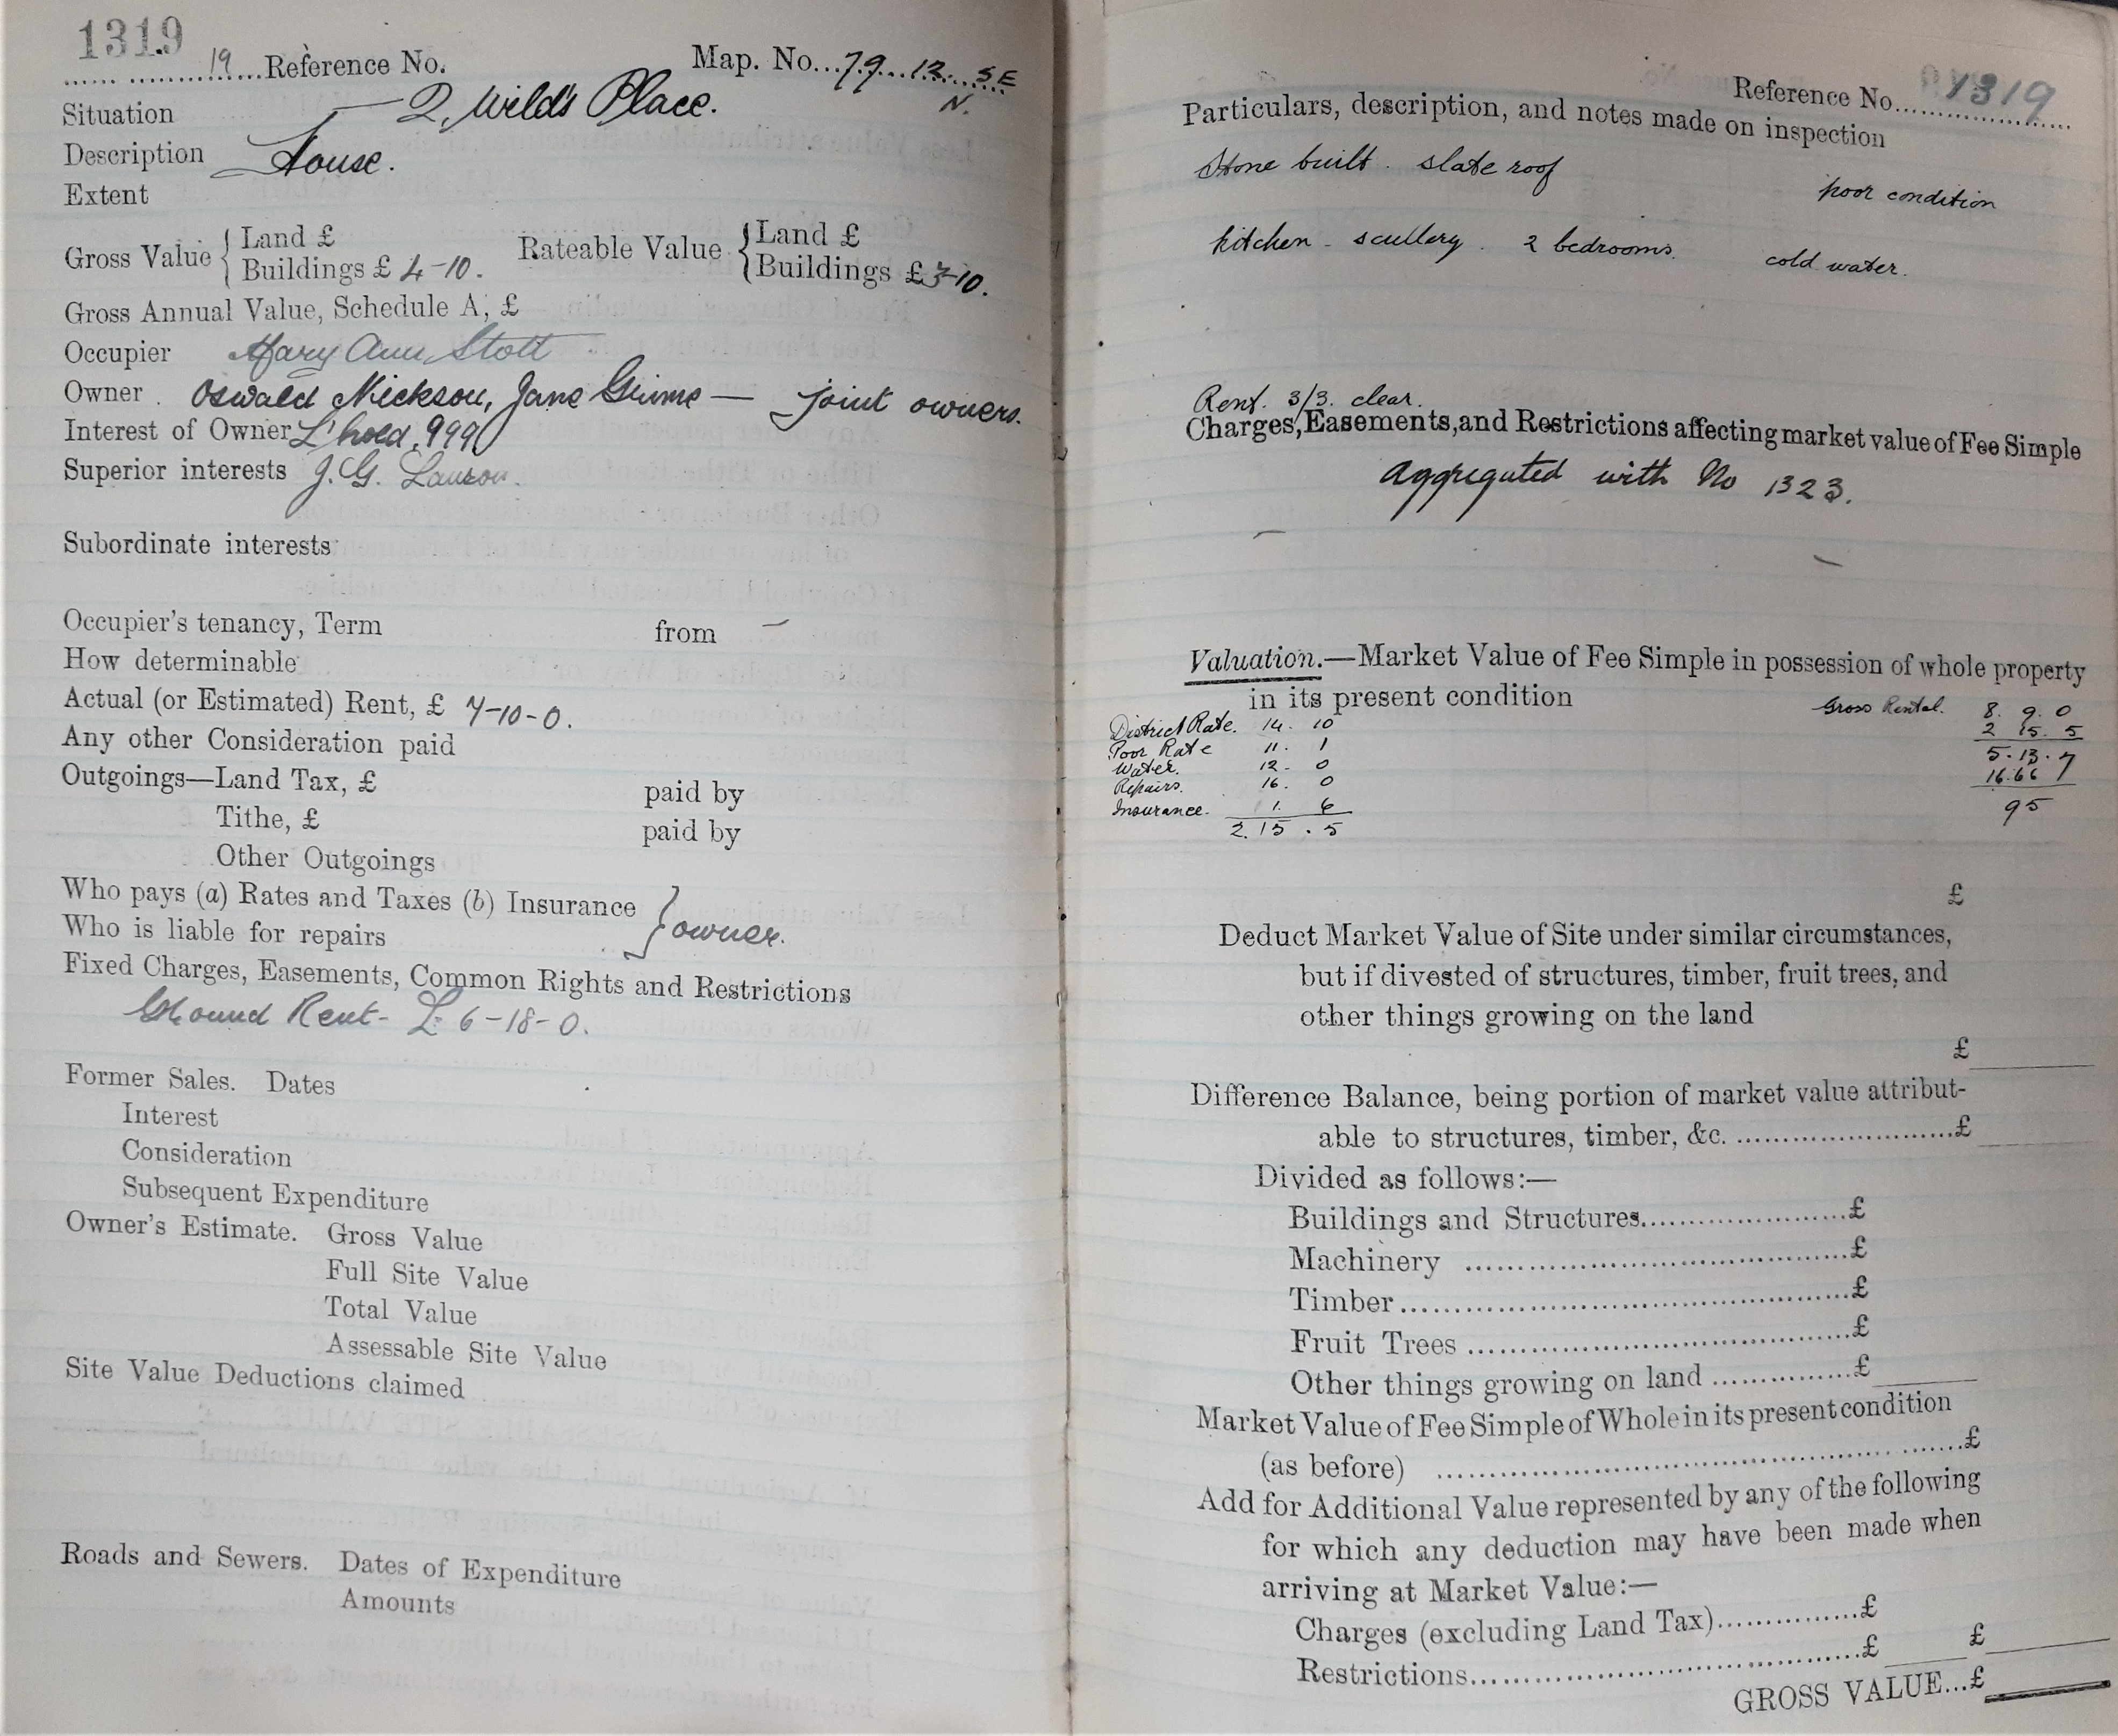 1319
19 Reference No. Map. No. 79. 12. SE
N.
Situation — 2, Wild's Place.
Description House.
Extent
Gross Value { Land £ Rateable Value { Land £
Buildings £ 4-10. Buildings £ 3-10.
Gross Annual Value, Schedule A, £
Occupier Mary Ann Stott
Owner. Oswald Nickson, Jane Grime — joint owners.
Interest of Owner L'hold. 999
Superior interests J. G. Lawson.
Subordinate interests
Occupier's tenancy, Term from —
How determinable
Actual (or Estimated) Rent, £ 7-10-0.
Any other Consideration paid
Outgoings—Land Tax, £ paid by
Tithe, £ paid by
Other Outgoings
Who pays (a) Rates and Taxes (b) Insurance
Who is liable for repairs } owner.
Fixed Charges, Easements, Common Rights and Restrictions
Ground Rent- £ 6-18-0.
Former Sales. Dates
Interest
Consideration
Subsequent Expenditure
Owner's Estimate. Gross Value
Full Site Value
Total Value
Assessable Site Value
Site Value Deductions claimed
Roads and Sewers. Dates of Expenditure
Amounts
Reference No. 1319
Particulars, description, and notes made on inspection
Stone built. slate roof poor condition
kitchen - scullery. 2 bedrooms. cold water.
Rent. 3/3. clear.
Charges, Easements, and Restrictions affecting market value of Fee Simple
Aggregated with No 1323.
Valuation.—Market Value of Fee Simple in possession of whole property
in its present condition Gross Rental. 8. 9. 0
District Rate. 14. 10 2 15. 5
Poor Rate 11. 1 5. 13. 7
Water. 12. 0 16.66
Repairs. 16. 0 95
Insurance. 1. 6
2. 15. 5
£
Deduct Market Value of Site under similar circumstances,
but if divested of structures, timber, fruit trees, and
other things growing on the land
£
Difference Balance, being portion of market value attribut-
able to structures, timber, &c. £
Divided as follows:—
Buildings and Structures £
Machinery £
Timber £
Fruit Trees £
Other things growing on land £
Market Value of Fee Simple of Whole in its present condition
(as before) £
Add for Additional Value represented by any of the following
for which any deduction may have been made when
arriving at Market Value:—
Charges (excluding Land Tax) £
Restrictions £ £
GROSS VALUE...£